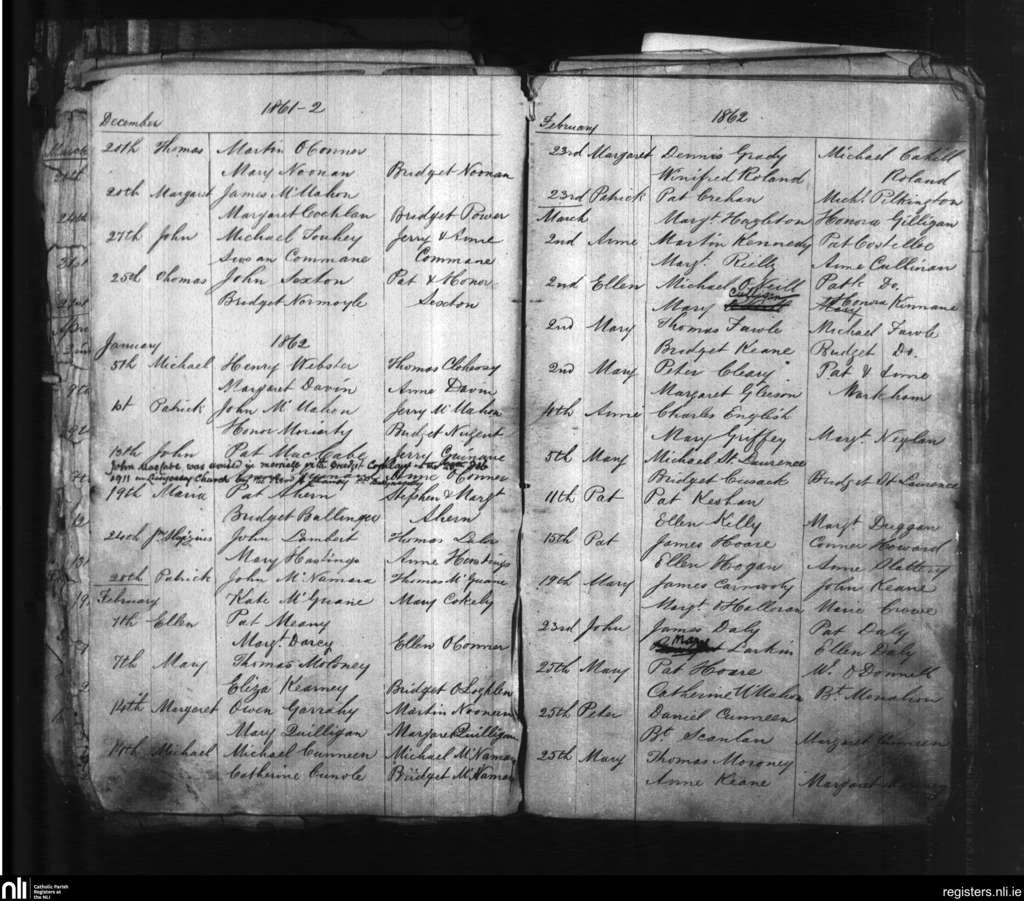 1861-2
December
20th Thomas Martin OConnor
Mary Noonan Bridget Noonan
20th Margaret James McMahon
Margaret Coghlan Bridget Power
27th John Michael Touhey Jerry & Anne
Susan Commane Commane
25th Thomas John Sexton Pat & Honor
Bridget Normoyle Sexton
January 1862
5th Michael Henry Webster Thomas Clohessy
Margaret Davin Anne Davin
1st Patrick John McMahon Jerry McMahon
Honor Moriarty Bridget Nugent
13th John Pat MacCabe Jerry Guinane
John MacCabe was united in marriage with Bridget
1911 in Church by the Rev Anne OConnor
19th Maria Pat Ahern Stephen & Margt
Bridget Ballinger Ahern
24th John Lambert Thomas Lalor
Mary Hastings Anne Hastings
28th Patrick John McNamara Thomas McGuane
February Kate McGuane Mary Cokely
7th Ellen Pat Meany
Margt. Darcy Ellen OConnor
7th Mary Thomas Moloney
Eliza Kearney Bridget OLoghlen
14th Margaret Owen Garrahy Martin Nooneen
Mary Quilligan Margaret Quilligan
14th Michael Michael Cunneen Michael McNamara
Catherine Cunole Bridget McNamara
February 1862
23rd Margaret Dennis Grady Michael Cahill
Winifred Roland Roland
23rd Patrick Pat Crehan Michl. Pilkington
March Margt. Hogleton Honora Gilligan
2nd Anne Martin Kennedy Pat Costelloe
Margt. Reilly Anne Cullinan
2nd Ellen Michael O'Neill Patk Do.
Mary Culligan Honora Kinnane
2nd Mary Thomas Fawle Michael Fawle
Bridget Keane Bridget Do.
2nd Mary Peter Cleary Pat & Anne
Margaret Gleeson Markham
4th Anne Charles English
Mary Griffey Margt. Neylan
5th Mary Michael St Laurence
Bridget Cusack Bridget St Laurence
11th Pat Pat Keshan
Ellen Kelly Margt Duggan
15th Pat James Hoare Conner Howard
Ellen Hogan Anne Slattery
19th Mary James Carmody John Keane
Margt. OHalloran Maria Crowe
23rd John James Daly Pat Daly
Mary Larkin Ellen Daly
25th Mary Pat Hoare W. ODonnell
Catherine McMahon Bt. Monahan
25th Peter Daniel Cunneen
Bt. Scanlan Margaret Cunneen
25th Mary Thomas Moroney
Anne Keane Margaret
nli Catholic Parish
Registers at
the NLI
registers.nli.ie